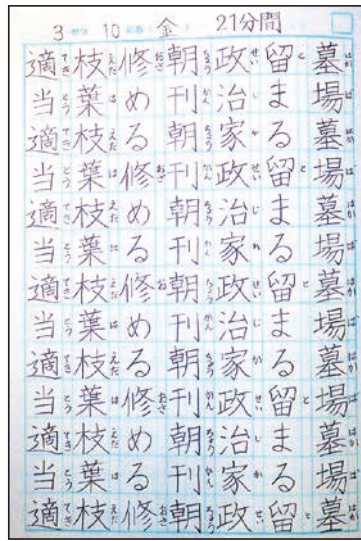 3がつ 10 金 21分間
墓場墓場墓場墓場墓場墓場墓
留まる留まる留まる留まる留
政治家政治家政治家政治家政
朝刊朝刊朝刊朝刊朝刊朝刊朝
修める修める修める修める修
枝葉枝葉枝葉枝葉枝葉枝葉枝
適当適当適当適当適当適当適